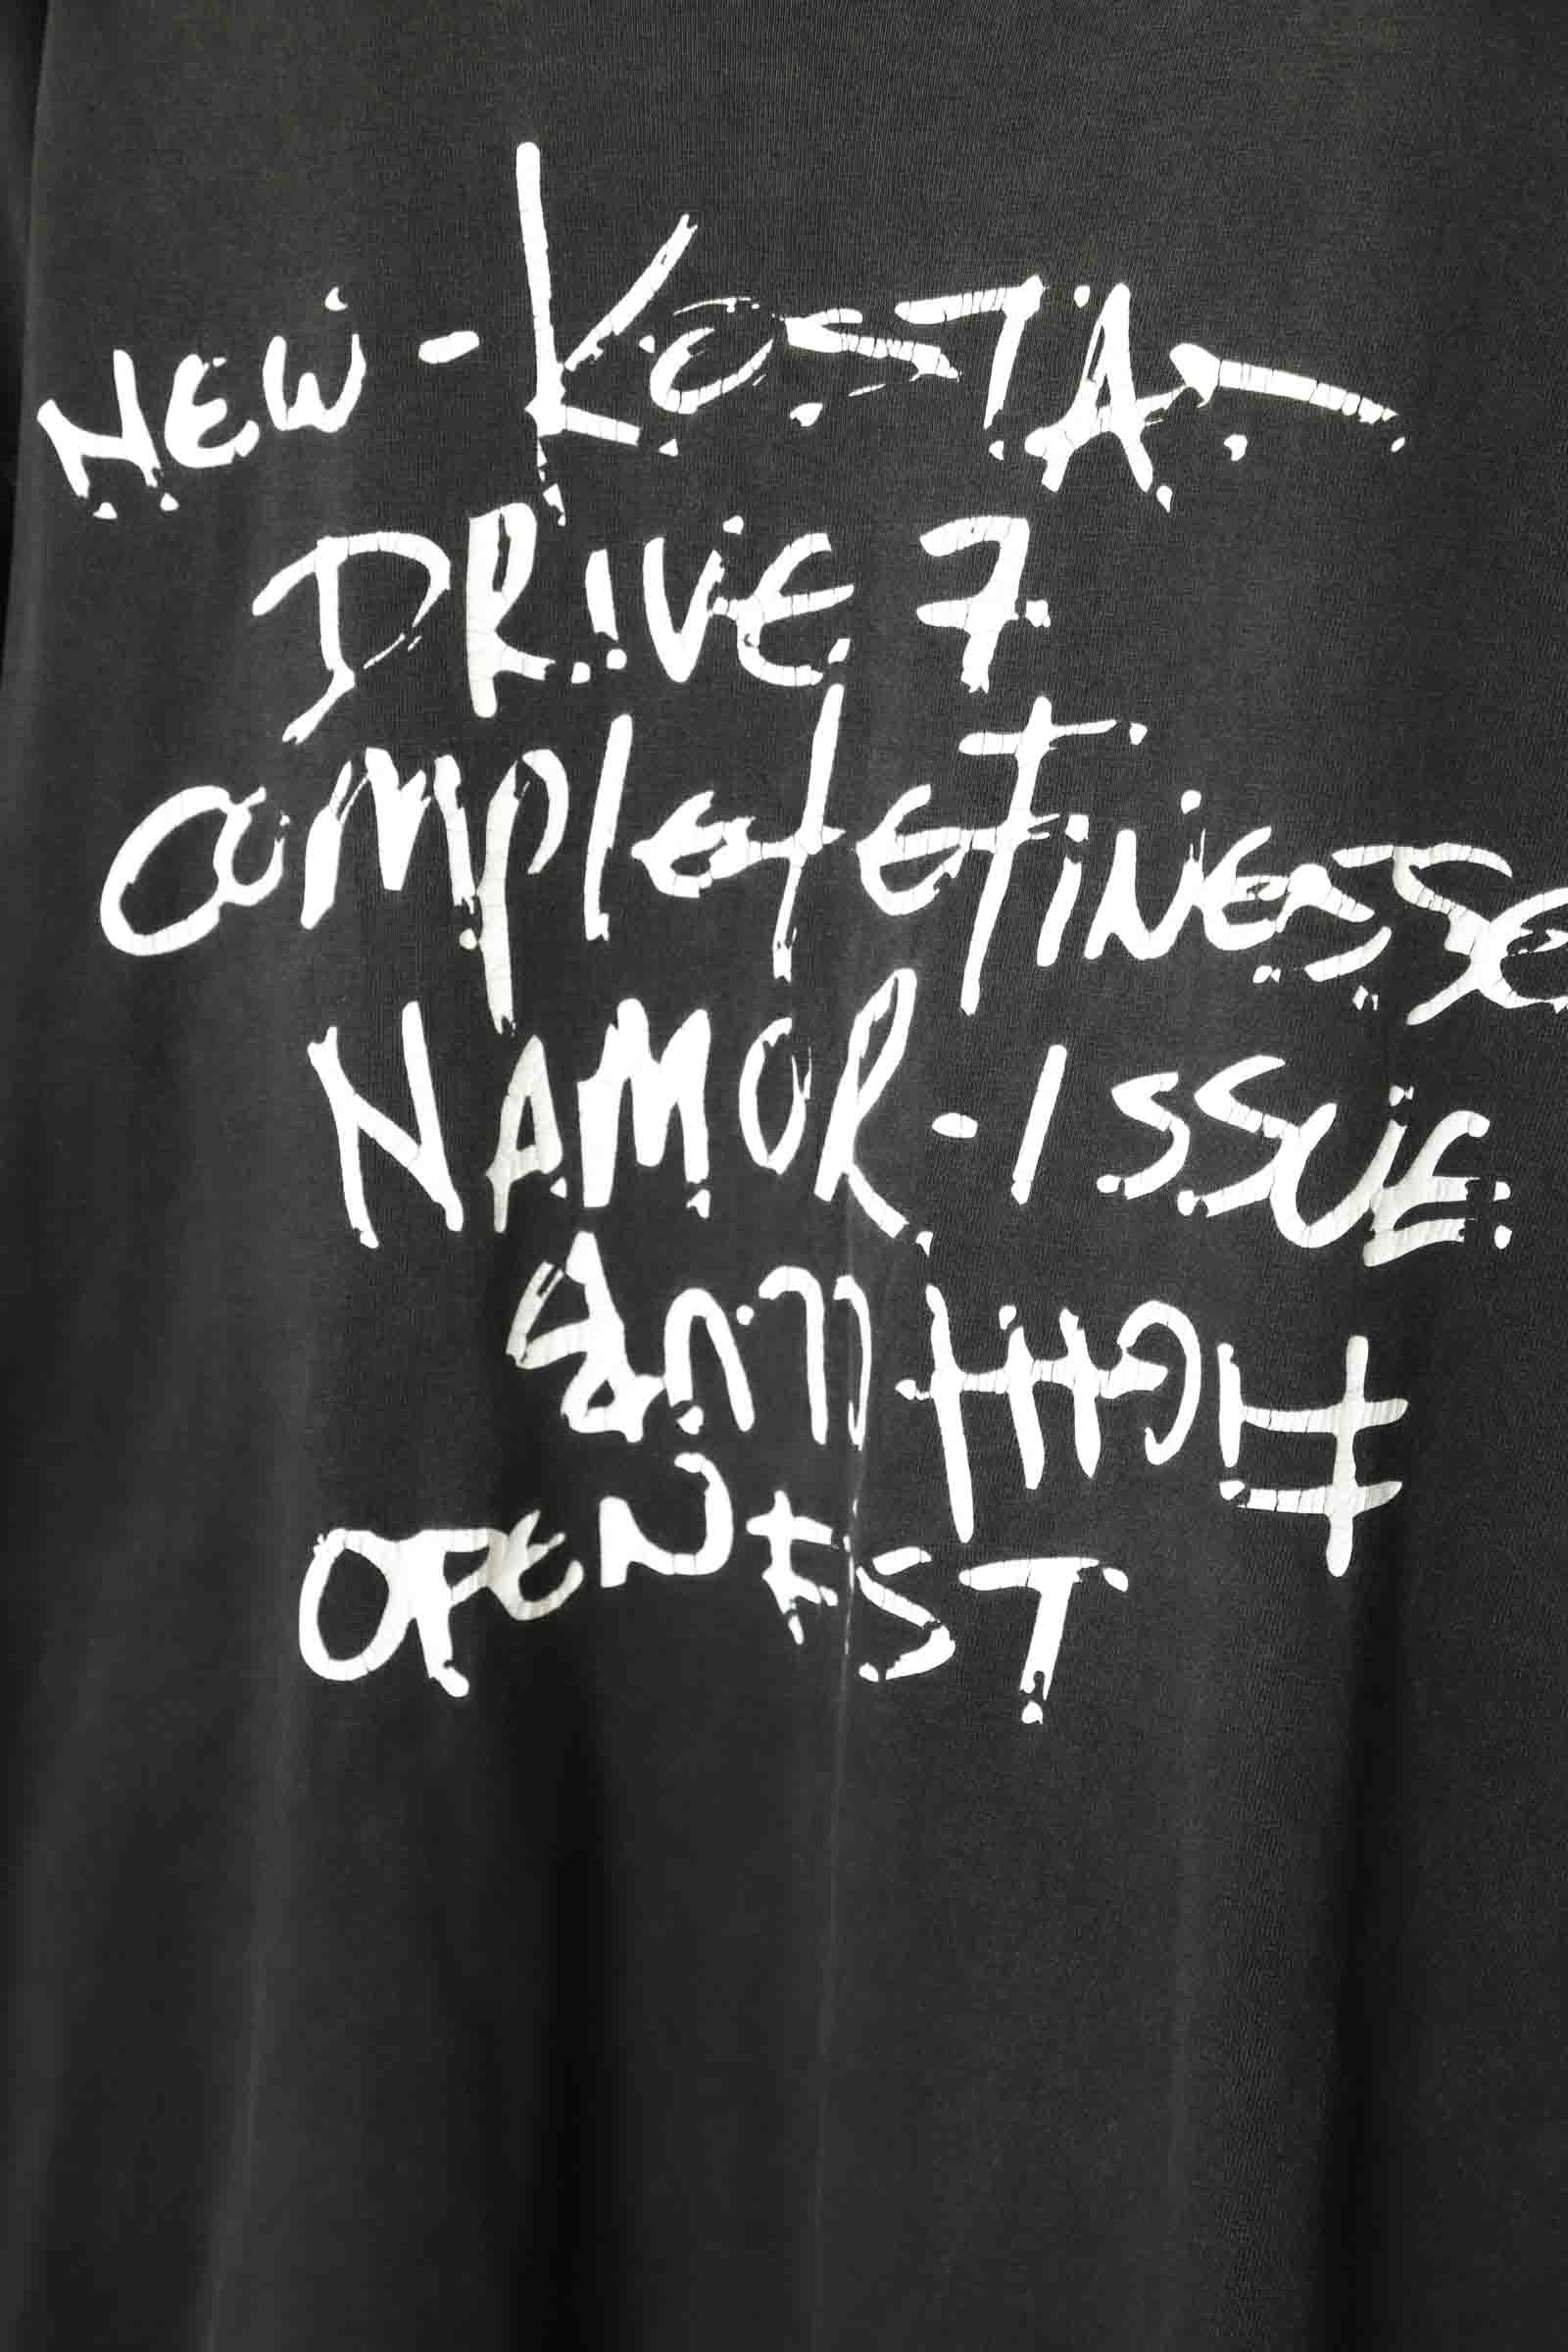 NEW-KOSTA
DRIVE 7
completeFINESSE
NAMOR-ISSUE
OPENEST